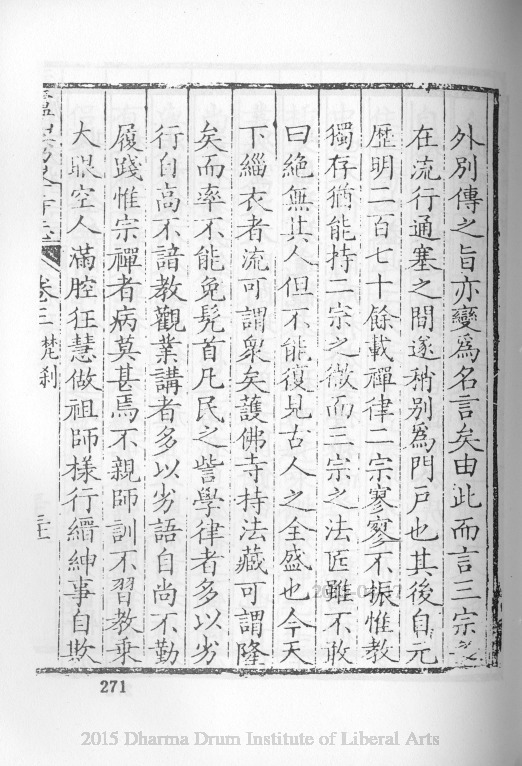 外別傳之旨亦變爲名言矣由此而言三宗之
在流行通塞之間遂稍別爲門戶也其後自元
歷明二百七十餘載禪律二宗寥寥不振惟教
獨存猶能持二宗之微而三宗之法匠雖不敢
曰絕無其人但不能復見古人之全盛也今天
下緇衣者流可謂衆矣護佛寺持法藏可謂隆
矣而率不能免髡首凡民之訾學律者多以劣
行自高不諳教觀業講者多以劣語自尚不勤
履踐惟宗禪者病莫甚焉不親師訓不習教乗
大眼空人滿腔狂慧做祖師様行縉紳事自欺
卷三 梵刹
三十二
271
2015 Dharma Drum Institute of Liberal Arts